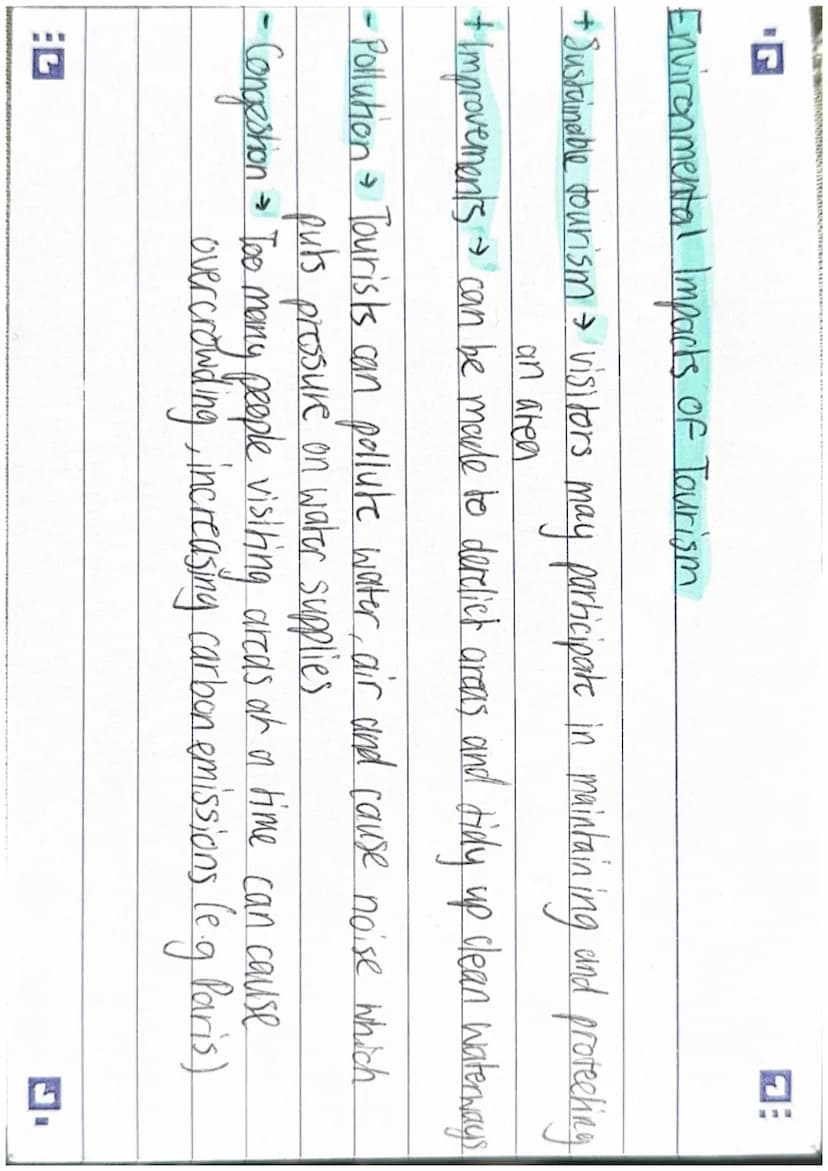 Environmental Impacts of Tourism
+ Sustainable tourism → visitors may participate in maintaining and protecting
an area
+ Improvements → can be made to derelict areas and tidy up clean waterways
- Pollution → Tourists can pollute water, air and cause noise which
puts pressure on water supplies
- Congestion → Too many people visiting areas at a time can cause
overcrowding, increasing carbon emissions (e.g Paris)